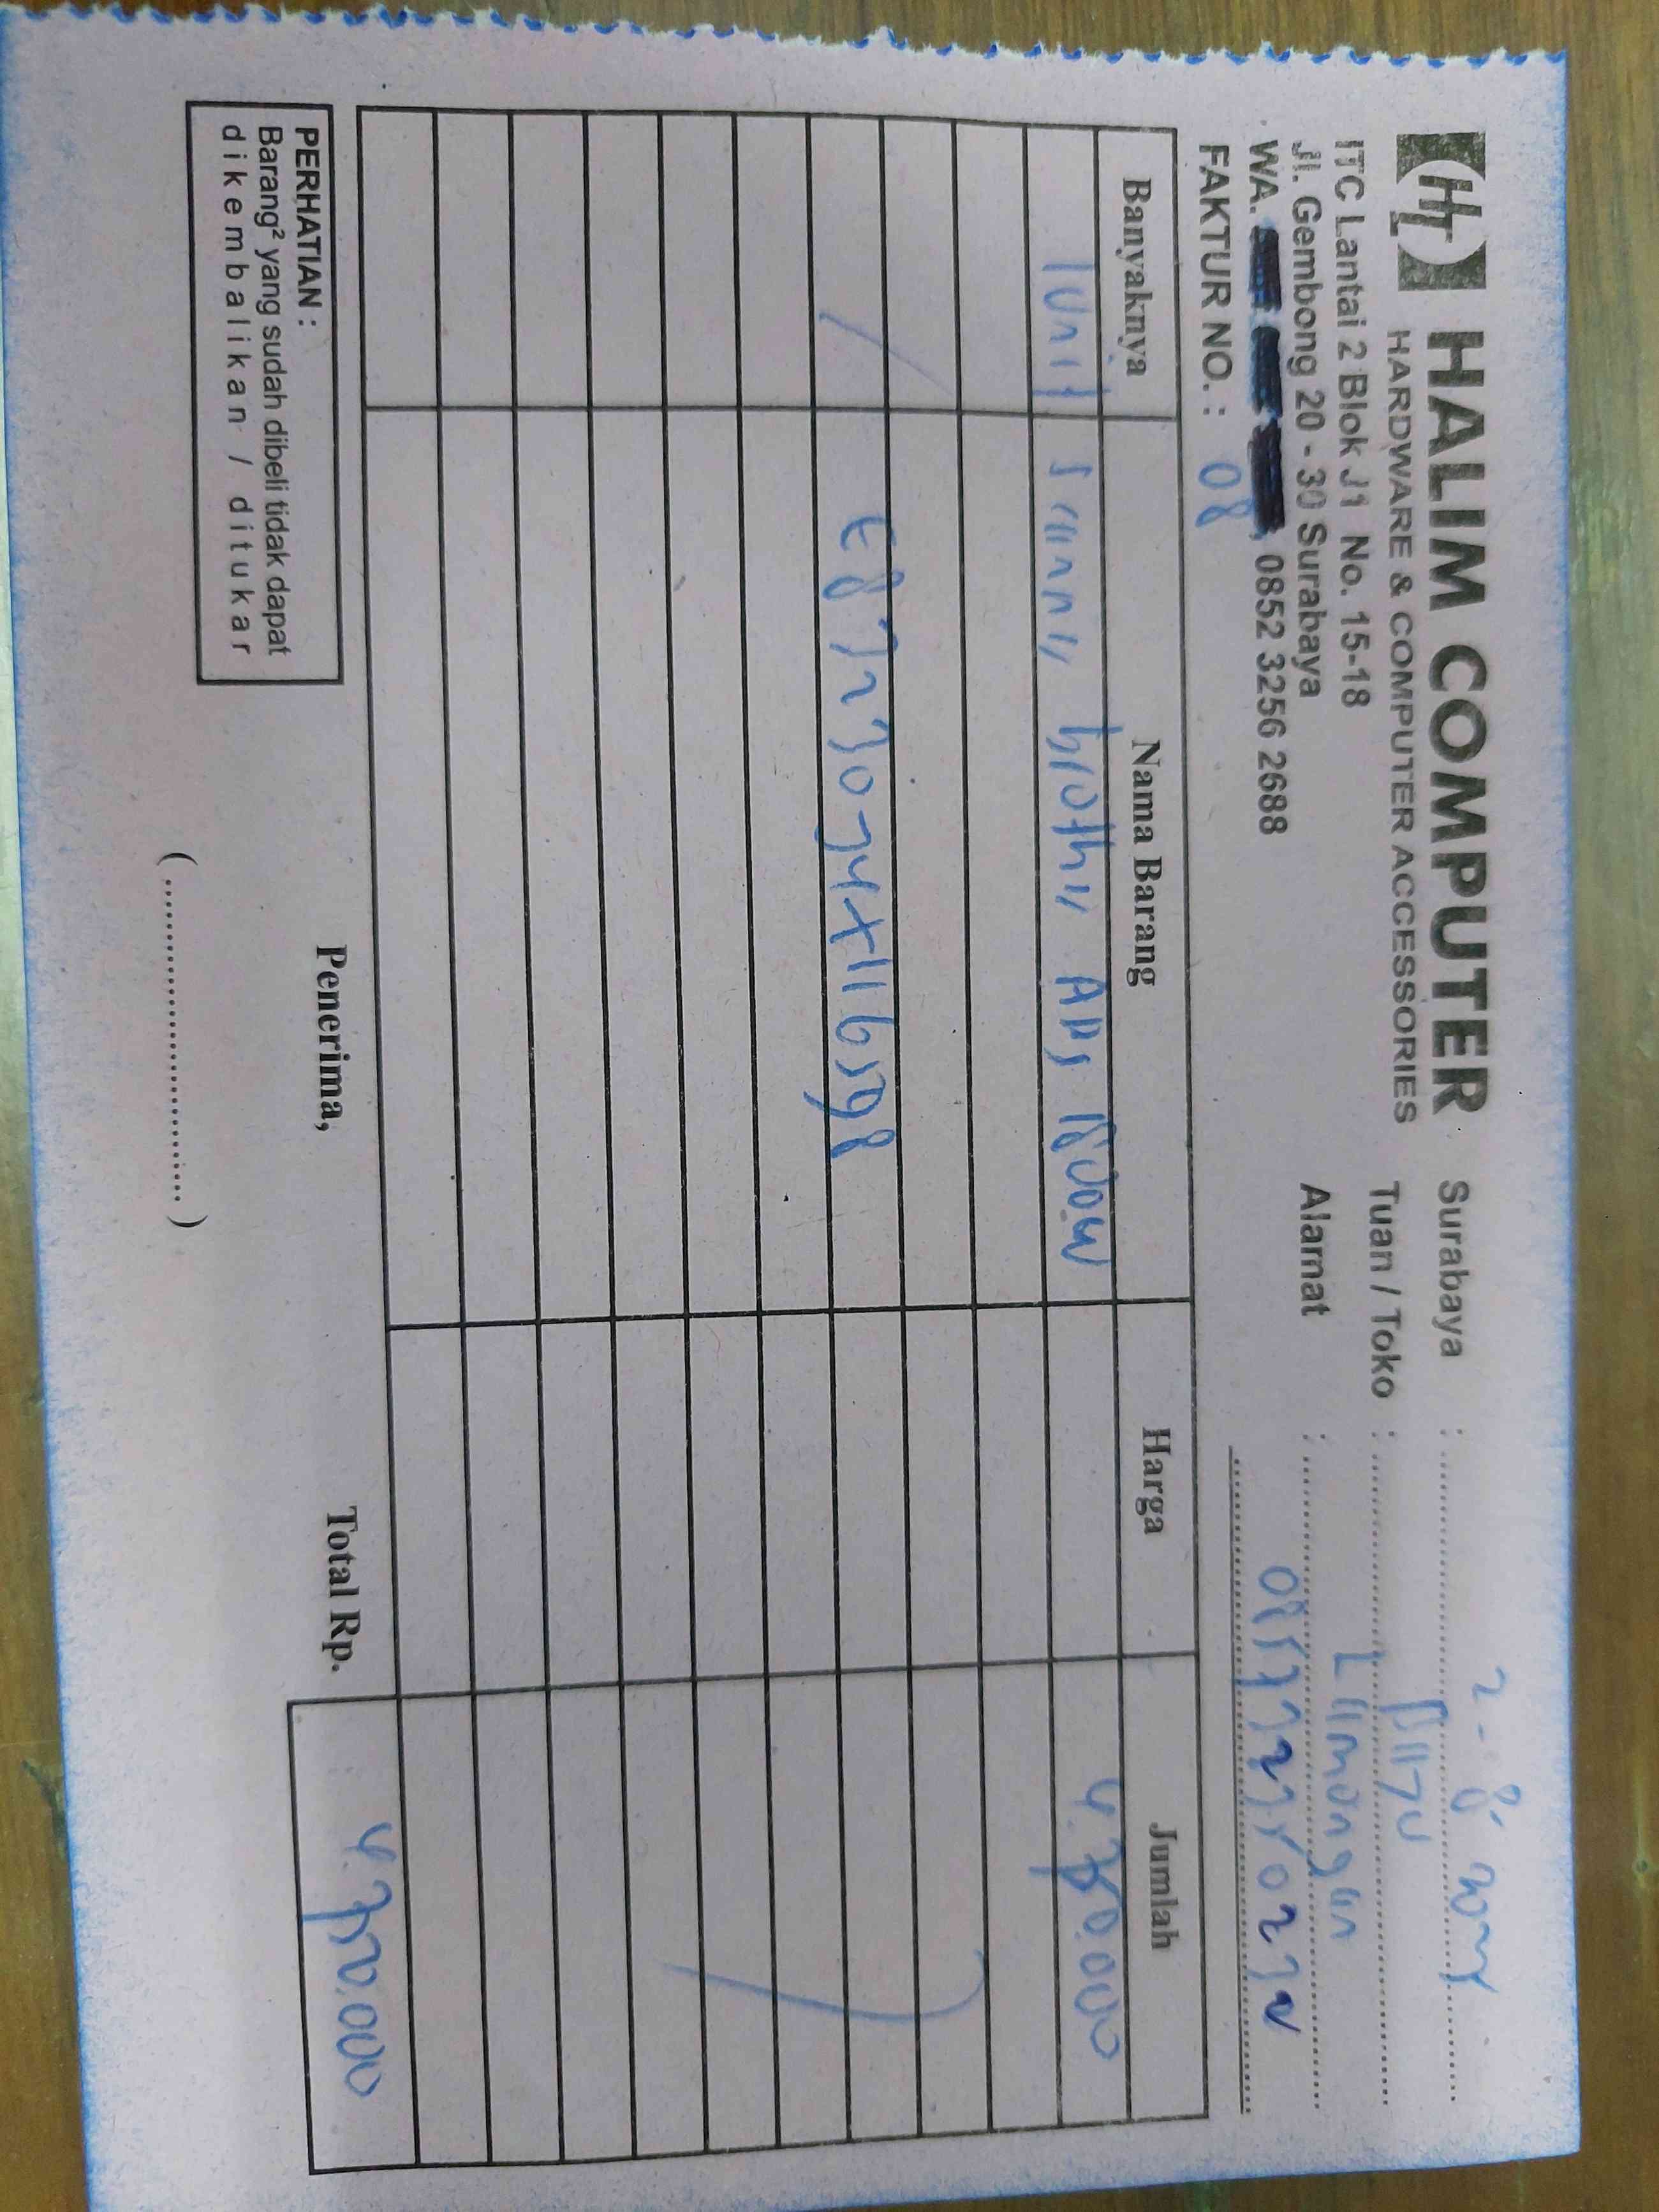 HALIM COMPUTER
HARDWARE & COMPUTER ACCESSORIES
ITC Lantai 2 Blok J1 No. 15-18
Jl. Gembong 20 - 30 Surabaya
WA. 0852 3256 2688
FAKTUR NO. : 08
Surabaya : 2 - 8 -
Tuan / Toko :
Alamat : Lamongan
Banyaknya Nama Barang Harga Jumlah
1 unit Scanner brother ADS 1800W
PERHATIAN :
Barang² yang sudah dibeli tidak dapat
dikembalikan / ditukar
Penerima,
(..............................)
Total Rp.